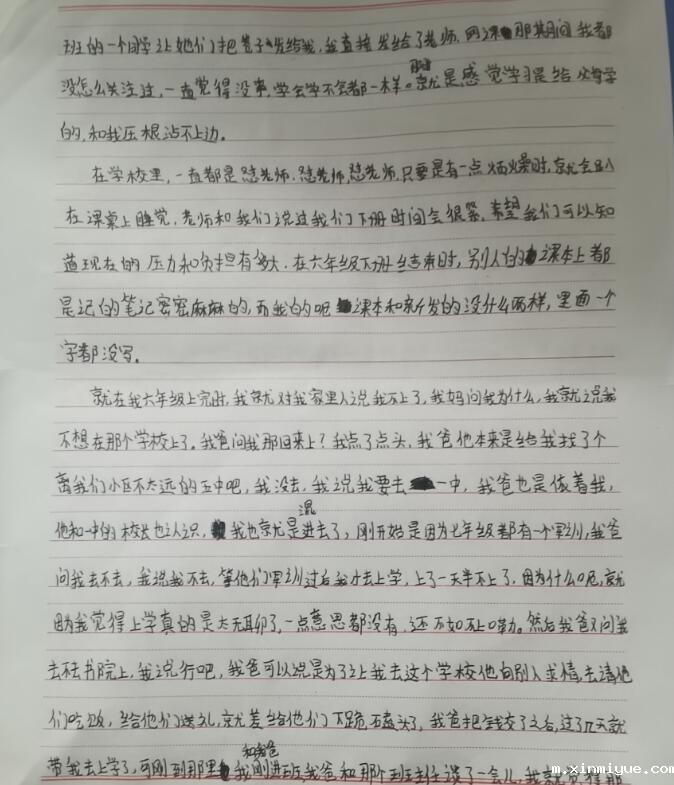 班的一个同学让她们把卷子发给我,我直接发给了老师.网课那期间我都
没怎么关注过,一直觉得没事,学会学不会都一样。那时就是感觉学习是给父母学
的,和我压根沾不上边.
在学校里,一直都是怼老师.怼老师,怼老师,只要是有一点烦燥时,就会趴
在课桌上睡觉,老师和我们说过我们下册时间会很紧,希望我们可以知
道现在的压力和负担有多大.在六年级下册结束时,别人的课本上都
是记的笔记密密麻麻的,而我的呢课本和新发的没什么两样,里面一个
字都没写.
就在我六年级上完时,我就对我家里人说我不上了,我妈问我为什么,我就说我
不想在那个学校上了.我爸问我那回来上?我点了点头,我爸他本来是给我找了个
离我们小区不太远的五中吧,我没去,我说我要去一中,我爸也是依着我,
他和一中的校长也认识,我也就是混进去了,刚开始是因为七年级都有一个军训,我爸
问我去不去,我说我不去,等他们军训过后我才去上学,上了一天半不上了.因为什么呢,就
因为我觉得上学真的是太无聊了,一点意思都没有,还不如不上嘞.然后我爸又问我
去不去书院上,我说行吧,我爸可以说是为了让我去这个学校他向别人求情,去请他
们吃饭,给他们送礼,就差给他们下跪,磕头了,我爸把钱交了之后,过了几天就
带我去上学了,可刚到那里我和我爸刚进班,我爸和那个班主任谈了一会儿,我就觉得那
m.xinmiyue.com